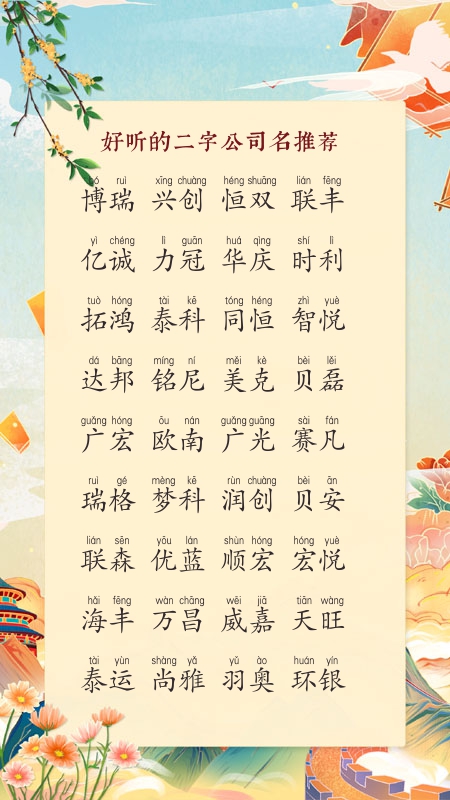 好听的二字公司名推荐
bó ruì xīng chuàng héng shuāng lián fēng
博瑞 兴创 恒双 联丰
yì chéng lì guān huá qìng shí lì
亿诚 力冠 华庆 时利
tuò hóng tài kē tóng héng zhì yuè
拓鸿 泰科 同恒 智悦
dá bāng míng ní měi kè bèi lěi
达邦 铭尼 美克 贝磊
guǎng hóng ōu nán guǎng guāng sài fán
广宏 欧南 广光 赛凡
ruì gé mèng kē rùn chuàng bèi ān
瑞格 梦科 润创 贝安
lián sēn yōu lán shùn hóng hóng yuè
联森 优蓝 顺宏 宏悦
hǎi fēng wàn chāng wēi jiā tiān wàng
海丰 万昌 威嘉 天旺
tài yùn shàng yǎ yǔ ào huán yín
泰运 尚雅 羽奥 环银